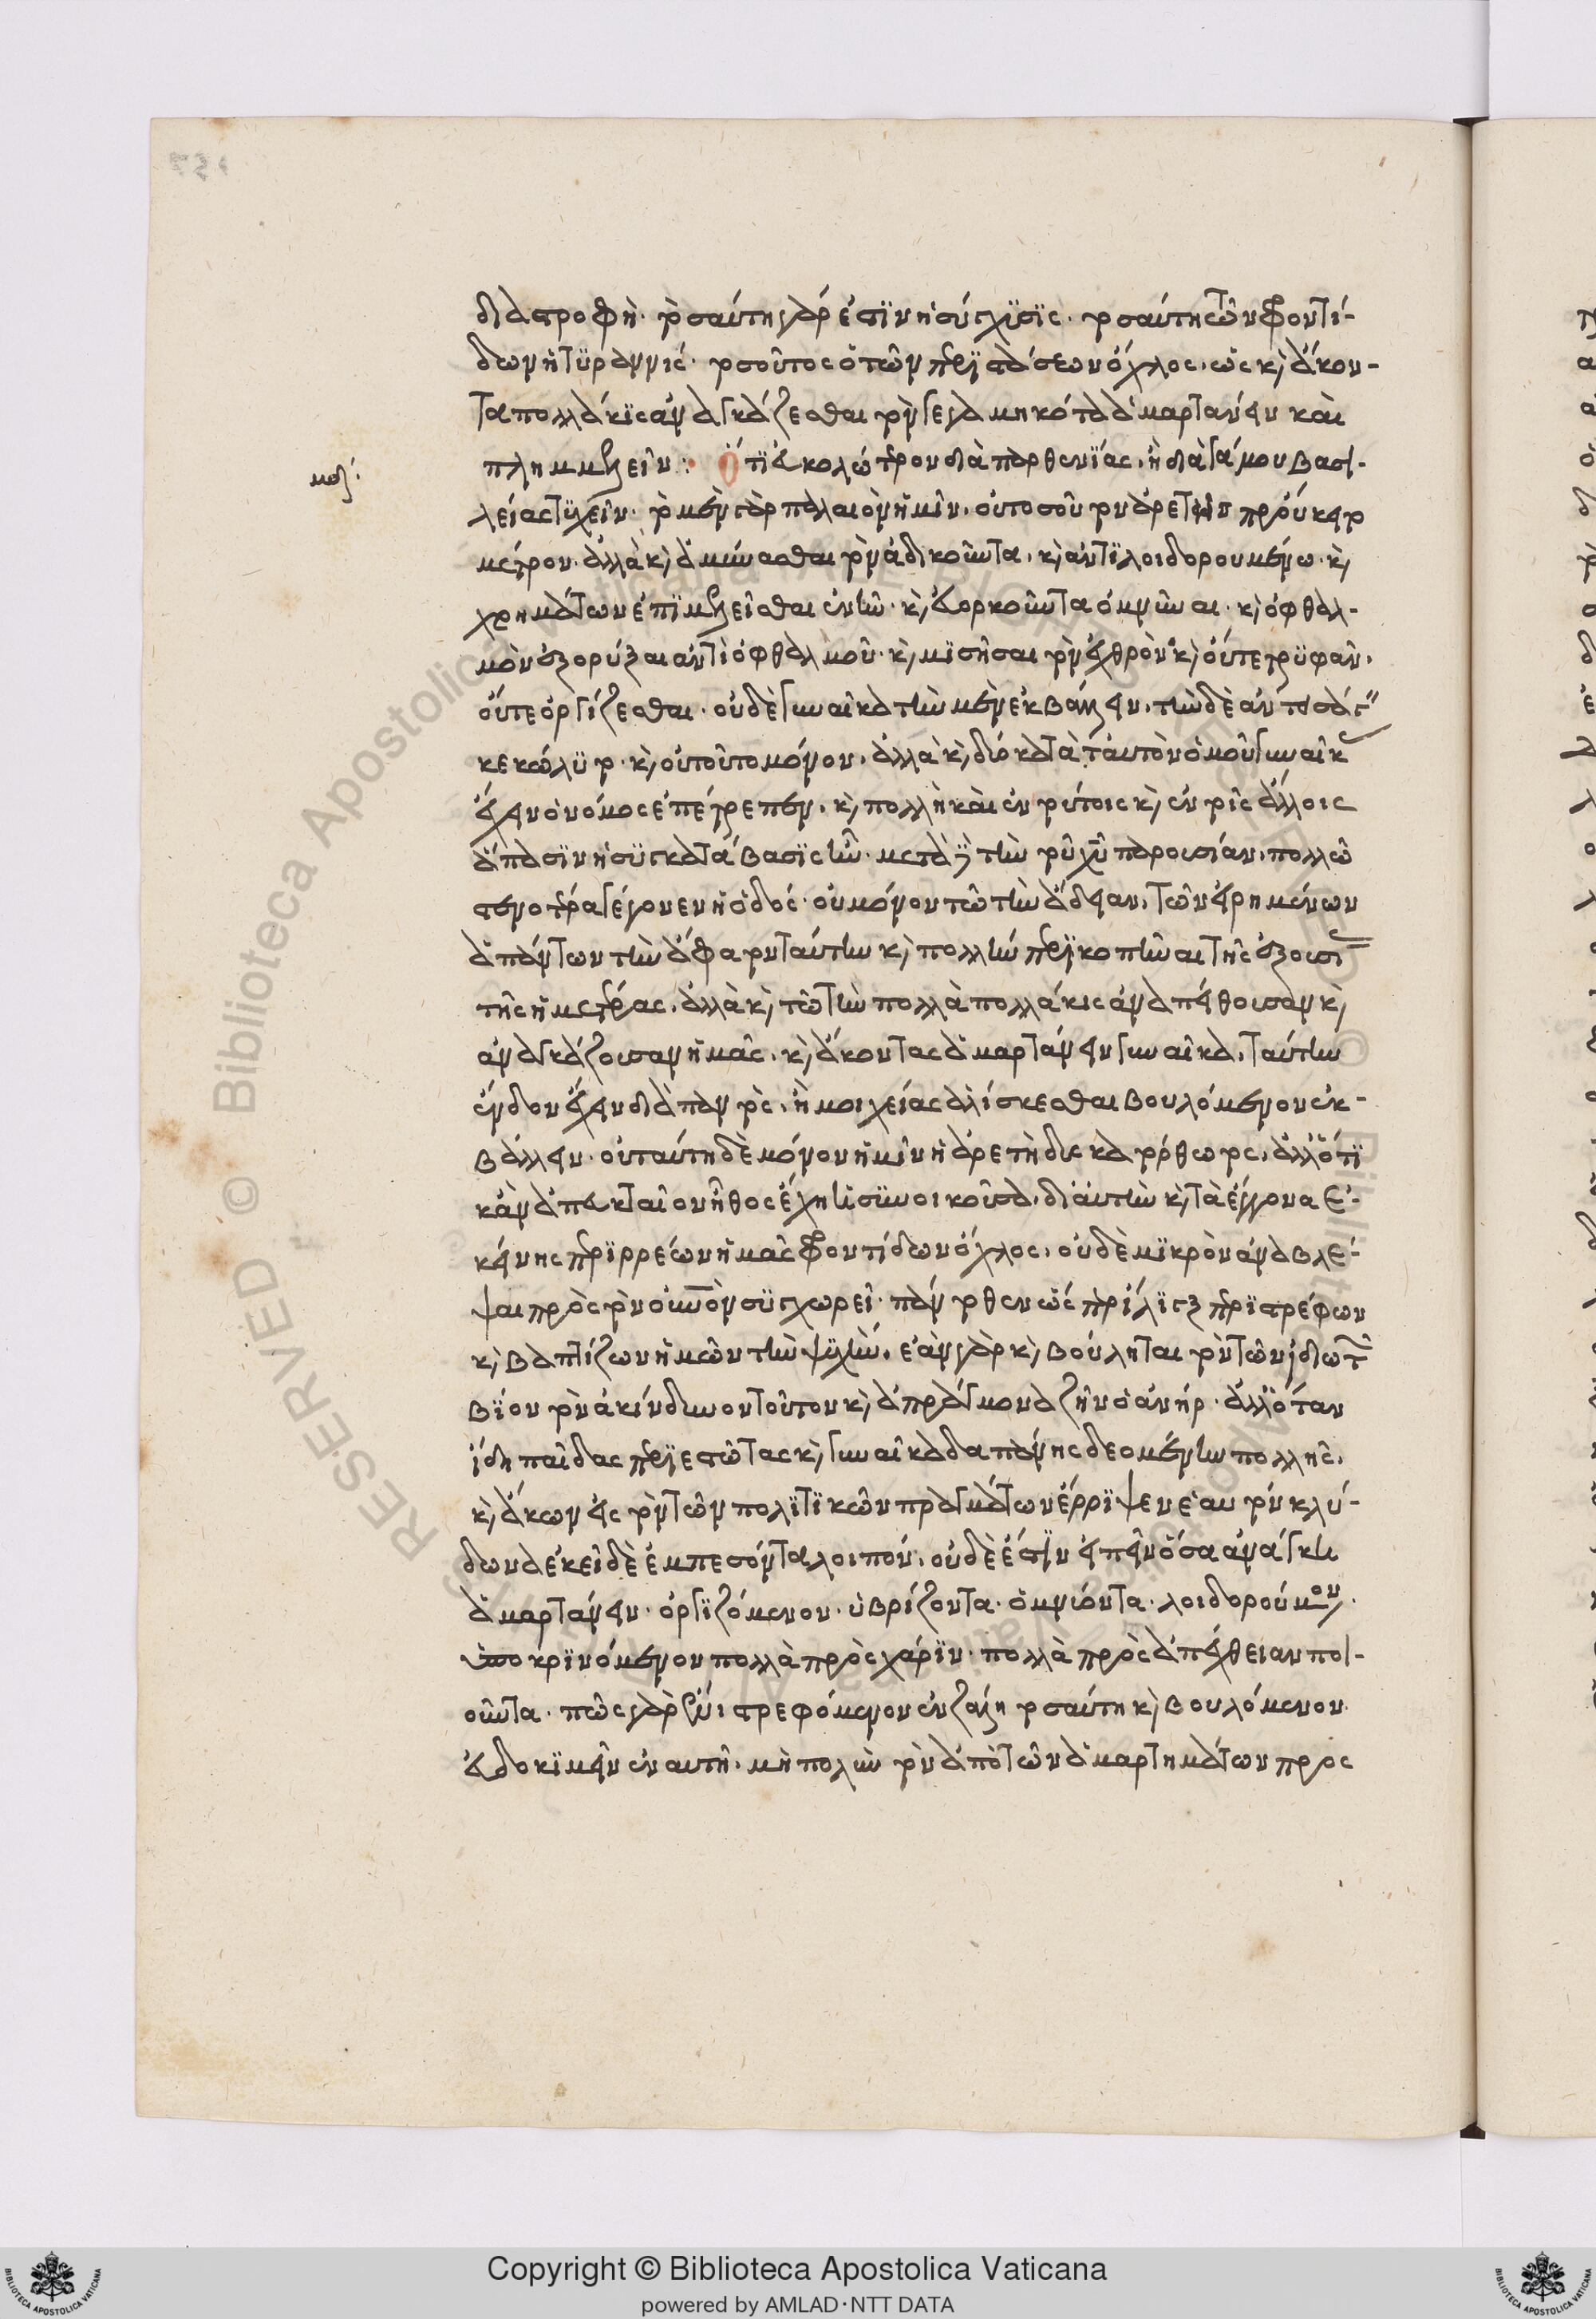 διαστροφή· τοσαύτη γάρ ἐστϊν ἡ σύγχϋσϊς· τοσαύτη τῶν φροντί-
δων ἡ τϋραννίς· τοσοῦτος ὁ τῶν περϊστάσεων ὄχλος, ὡς κ(αὶ) ἄκον-
τα πολλάκϊς ἀναγκάζεσθαι τὸν γεγαμηκότα ἁμαρτάνειν καὶ
πλημμελεῖν: Ὅτϊ εὐκολώτερον διὰ παρθενΐας, ἢ διὰ γάμου βασι-
λείας τϋχεῖν· τὸ μὲν γὰρ παλαιὸν ἡμῖν, οὐ τοσοῦτον ἀρετῆς προὔκειτο
μέτρον· ἀλλὰ κ(αὶ) ἀμύνασθαι τὸν ἀδικοῦντα, κ(αὶ) ἀντϊλοιδορουμένω· κ(αὶ)
χρημάτων ἐπϊμελεῖσθαι ἐνῆν· κ(αὶ) εὐορκοῦντα ὀμνῦναι· κ(αὶ) ὀφθαλ-
μὸν ἐξορύξαι ἀντὶ ὀφθαλμοῦ· κ(αὶ) μϊσῆσαι τὸν ἐχθρὸν· κ(αὶ) οὔτε τρϋφᾶν,
οὔτε ὀργίζεσθαι· οὐδὲ γυναῖκα τὴν μὲν ἐκβάλλειν, τὴν δὲ ἀντεισάγειν
κεκώλϋτο· κ(αὶ) οὐ τοῦτο μόνον, ἀλλὰ κ(αὶ) δύο κατὰ ταυτὸν ὁμοῦ γυναῖκας
ἔχειν ὁ νόμος ἐπέτρεπεν, κ(αὶ) πολλὴ καὶ ἐν τούτοις κ(αὶ) ἐν τοῖς ἄλλοις
ἅπασϊν ἡ σϋγκατάβασϊς ἦν· μετὰ δὲ τὴν τοῦ χ̅υ̅ παρουσίαν, πολλῶ
στενοτέρα γέγονεν ἡ ὁδός· οὐ μόνον τῶ τὴν ἄδειαν, τῶν εἰρημένων
ἁπάντων τὴν ἄφατον ταύτην κ(αὶ) πολλὴν περϊκοπῆναι τῆς ἐξουσίας
τῆς ἡμετέρας, ἀλλὰ κ(αὶ) τῶ τὴν πολλὰ πολλάκις ἀναπείθουσαν κ(αὶ)
ἀναγκάζουσαν ἡμᾶς, κ(αὶ) ἄκοντας ἁμαρτάνειν γυναῖκα, ταύτην
ἔνδον ἔχειν διὰ παντὸς, ἢ μοιχείας ἁλίσκεσθαι βουλόμενον ἐκ-
βάλλειν· οὐ ταύτη δὲ μόνον ἡμῖν ἡ ἀρετὴ δυσκατόρθωτος, ἀλλ' ὅτϊ
κἂν ἀνεκταῖον ἦθος ἔχη ἡ σϋνοικοῦσα, δι' αὐτὴν κ(αὶ) τὰ ἔγγονα ἐ-
κείνης περϊρρέων ἡμᾶς φροντίδων ὄχλος, οὐδὲ μϊκρὸν ἀναβλέ-
ψαι πρὸς τὸν οὐ̅ν̅ὸν σϋγχωρεῖ· πάντοθεν ὥσπερ ἴλϊγξ περϊστρέφων
κ(αὶ) βαπτίζων ἡμῶν τὴν ψϋχὴν, ἐὰν γὰρ κ(αὶ) βούληται τὸν τῶν ἰδιωτῶν
βϊον τὸν ἀκίνδυνον τοῦτον κ(αὶ) ἀπράγμονα ζῆν ὁ ἀνήρ· ἀλλ' ὅταν
ἴδη παῖδας περϊεστῶτας κ(αὶ) γυναῖκα δαπάνης δεομένην πολλῆς,
κ(αὶ) ἄκων εἰς τὸν τῶν πολϊτϊκῶν πραγμάτων ἔρρϊψεν ἑαυτὸν κλύ-
δωνα ἐκεῖ δὲ ἐμπεσόντα λοιπόν, οὐδὲ ἔστϊν εἰπεῖν ὅσα ἀνάγκη
ἁμαρτάνειν· ὀργϊζόμενον· ὑβρίζοντα· ὀμνύοντα· λοιδορούμενον·
ὑποκρϊνόμενον πολλὰ πρὸς χάρϊν· πολλὰ πρὸς ἀπέχθειαν ποι-
οῦντα· πῶς γὰρ ἔνι στρεφόμενον ἐν ζάλη τοσαύτη κ(αὶ) βουλόμενον
εὐδοκϊμεῖν ἐν αυτῆ, μὴ πολὺν τὸν ἀπὸ τῶν ἁμαρτημάτων προς
Copyright © Biblioteca Apostolica Vaticana
powered by AMLAD·NTT DATA